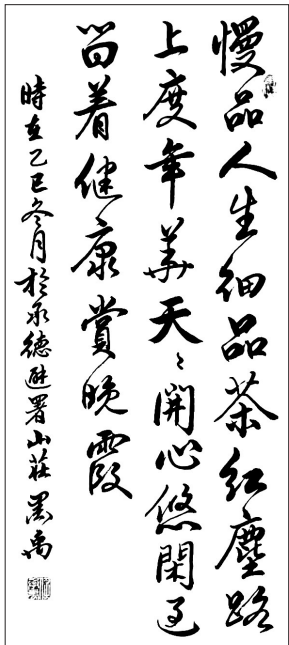 慢品人生細品茶紅塵路
上度年華天〻開心悠閑過
留着健康賞晚霞
時在乙巳冬月於承德避暑山莊墨禹